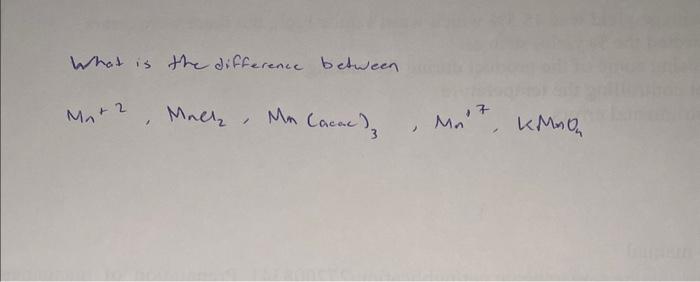 What is the difference between
Mn⁺², MnCl₂, Mn(acac)₃, Mn⁺⁷, KMnO₄